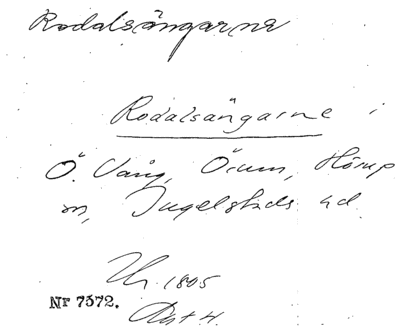 Rodalsängarne
Rodalsängarne i
Ö. Vång, Örum, Hörup
m, Ingelstads hd.
1805
Nr 7372.